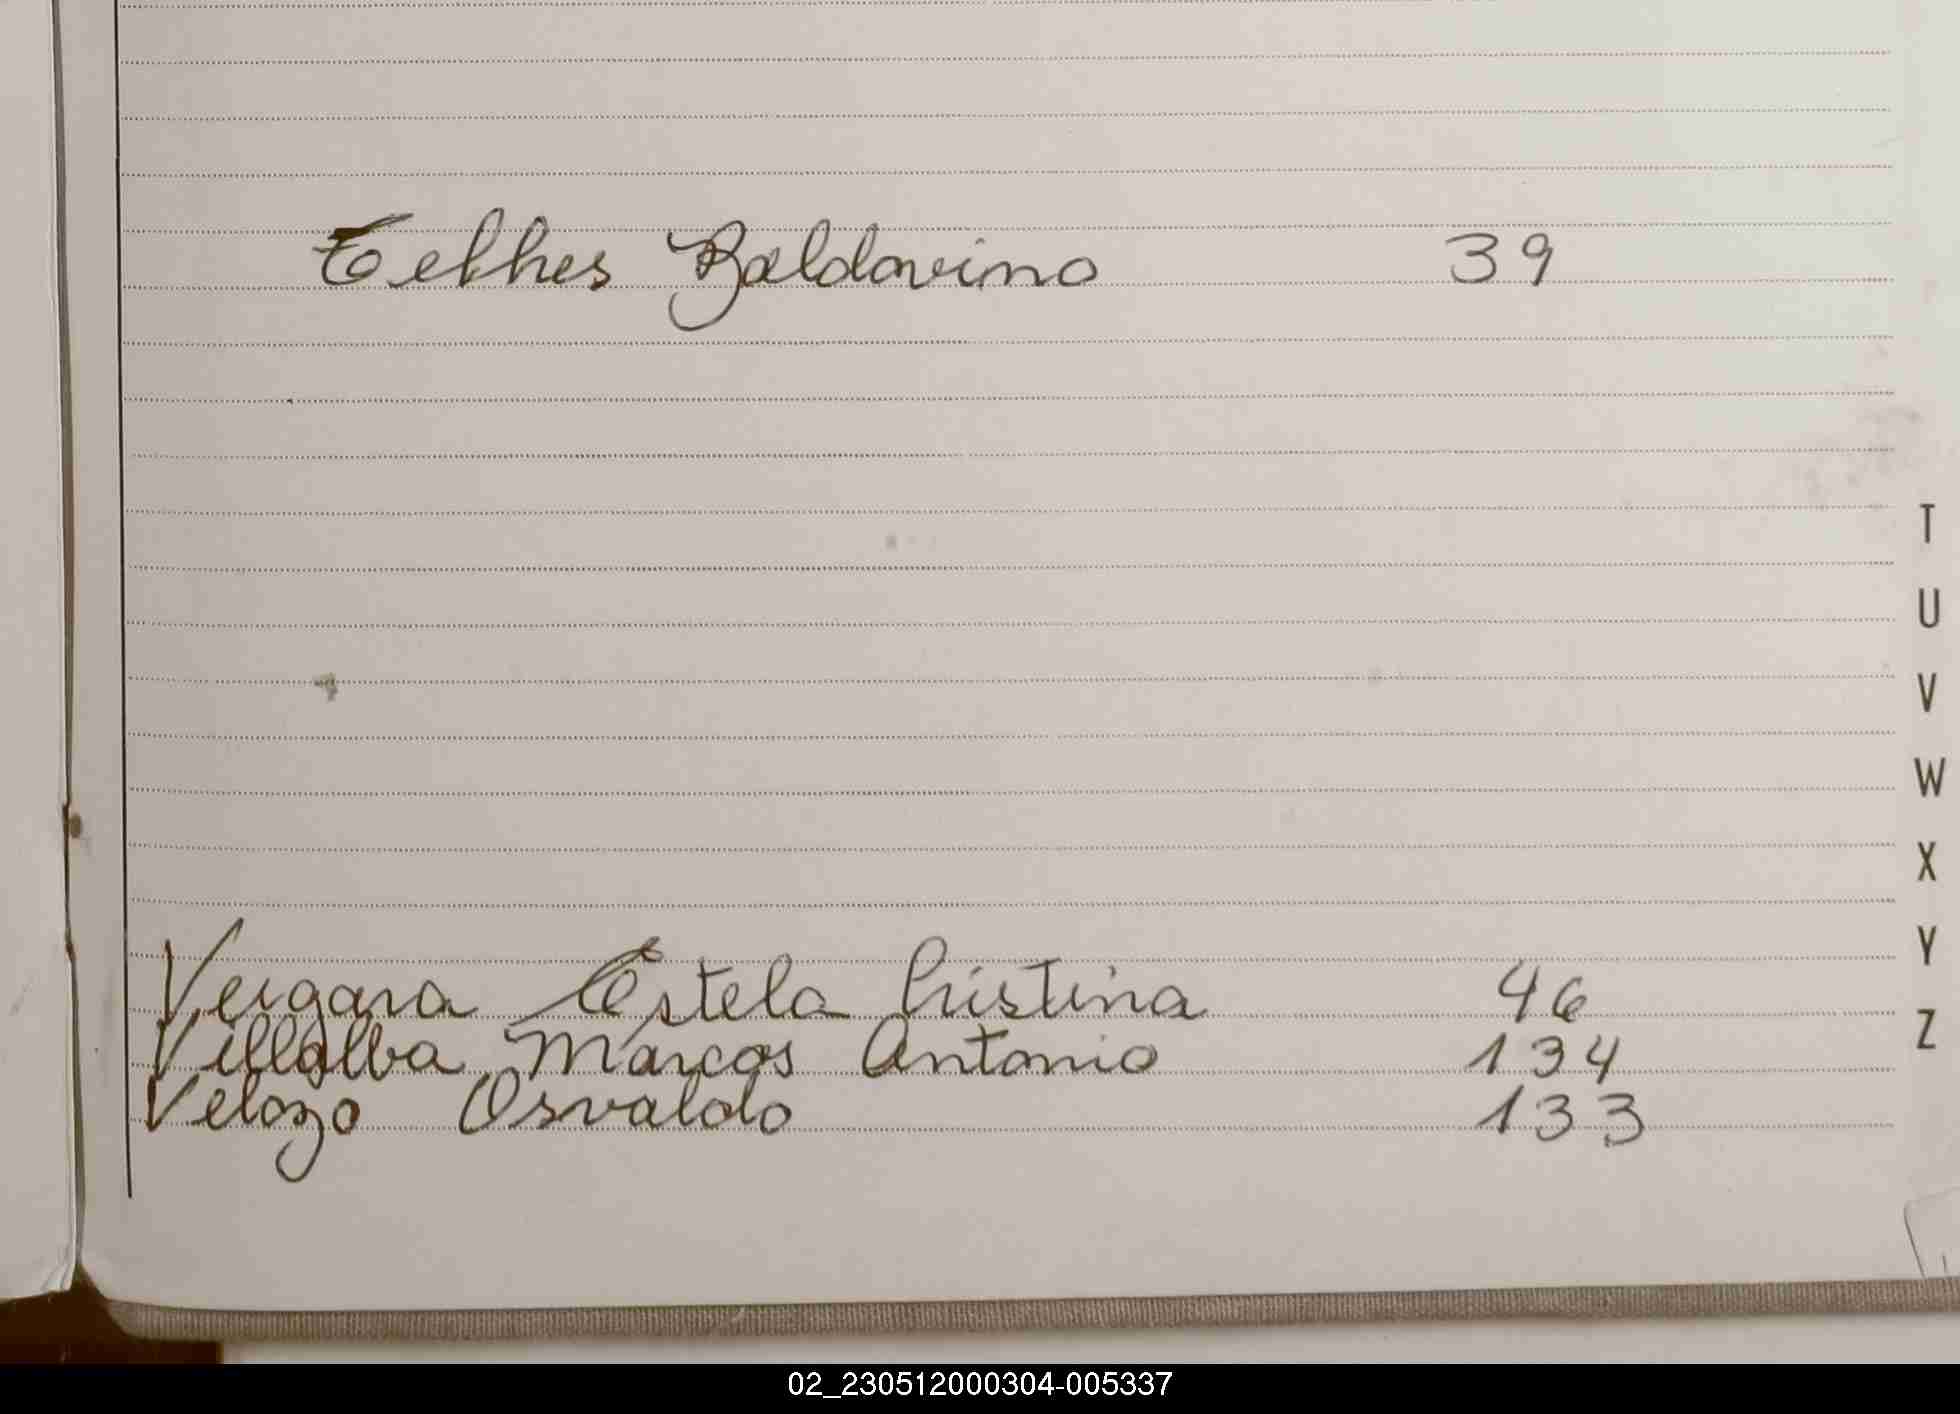 Telhes Baldovino 39
T
U
V
W
X
Y
Z
Vergara Estela Cristina 46
Villalba Marcos Antonio 134
Velozo Osvaldo 133
02_230512000304-005337